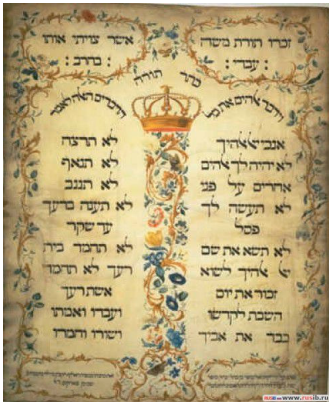 זכרו תורת משה
: עבדי :
אשר צויתי אותו
: בחרב :
כתר תורה
וידבר אלהים את כל
הדברים האלה לאמר
אנכי אלהיך
לא יהיה לך אלהים
אחרים על פני
לא תעשה לך
פסל
לא תשא את שם
אלהיך לשוא
זכור את יום
השבת לקדשו
כבד את אביך
לא תרצח
לא תנאף
לא תגנב
לא תענה ברעך
עד שקר
לא תחמד בית
רעך לא תחמד
אשת רעך
ועבדו ואמתו
ושורו וחמרו
www.rusib.ru